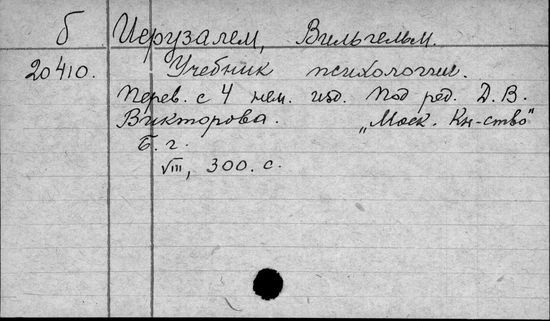 б Иерузалем, Вильгельм.
20410. Учебник психологии.
Перев. с 4 нем. изд. Под ред. Д. В.
Викторова. „Моск. Кн-ство"
Б. г.
VIII, 300. с.